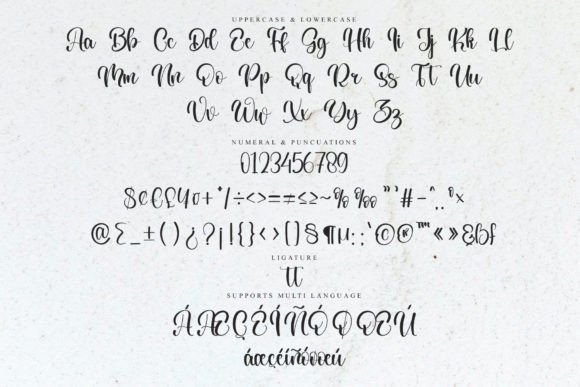 UPPERCASE & LOWERCASE
Aa Bb Cc Dd Ee Ff Gg Hh Ii Jj Kk Ll
Mm Nn Oo Pp Qq Rr Ss Tt Uu
Vv Ww Xx Yy Zz
NUMERAL & PUNCUATIONS
0123456789
$¢£¥o+*/÷<>=≠≤≥~%‰"'#-^.,°×
@Σ_±()¿?¡!{}‹›[]§¶µ:;`©®™«»&bf
LIGATURE
tt
SUPPORTS MULTI LANGUAGE
ÁÆÇÉÍÑÓOŒÚ
áæçéíñóoœú